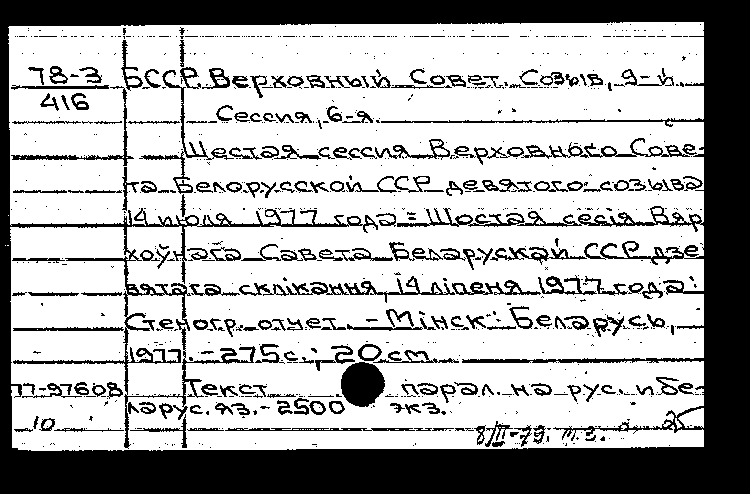 78-3 БССР. Верховный Совет. Созыв, 9-й.
416
Сессия, 6-я.
Шестая сессия Верховного Сове-
та Белорусской ССР девятого созыва
14 июля 1977 года = Шостая сесія Вяр
хоўнага Савета Беларускай ССР дзе
вятага склікання, 14 ліпеня 1977 года:
Стеногр. отчет. - Мінск: Беларусь,
1977. - 275 с.; 20 см.
77-97608 Текст парал. на рус. и бе-
ларус. яз. - 2500 экз.
10
8/II-79. 25